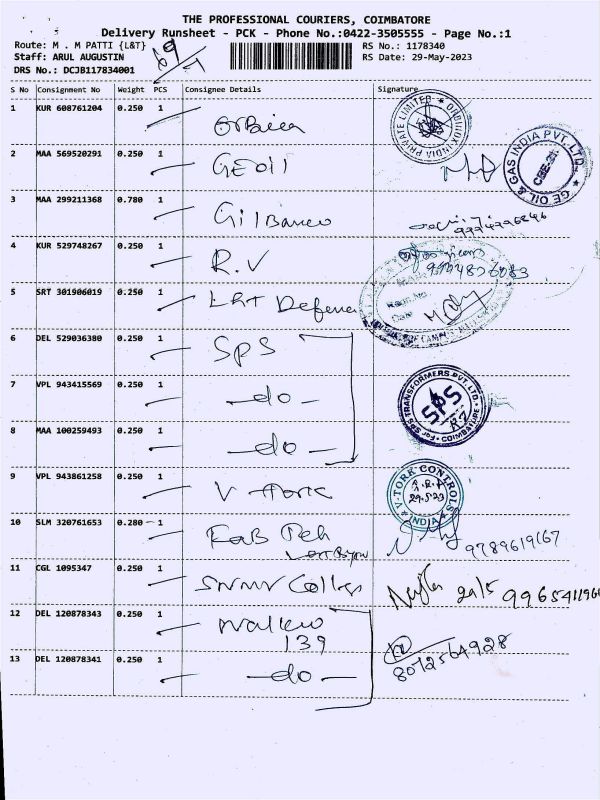 THE PROFESSIONAL COURIERS, COIMBATORE
Delivery Runsheet - PCK - Phone No.:0422-3505555 - Page No.:1
Route: M . M PATTI {L&T} RS No.: 1178340
Staff: ARUL AUGUSTIN RS Date: 29-May-2023
DRS No.: DCJB117834001
S No Consignment No Weight PCS Consignee Details Signature
1 KUR 608761204 0.250 1
2 MAA 569520291 0.250 1 GEOil
3 MAA 299211368 0.780 1 Gilbarco
4 KUR 529748267 0.250 1 R.V
5 SRT 301906019 0.250 1 L&T Defence
6 DEL 529036380 0.250 1 SPS
7 VPL 943415569 0.250 1 -do-
8 MAA 100259493 0.250 1 -do-
SPS TRANSFORMERS PVT. LTD. SPS COIMBATORE
9 VPL 943861258 0.250 1 V-tork
V-TORK CONTROLS 29.5.23 INDIA
10 SLM 320761653 0.280 1 9789619167
11 CGL 1095347 0.250 1 College 29/5
12 DEL 120878343 0.250 1
139
8072564928
13 DEL 120878341 0.250 1 -do-